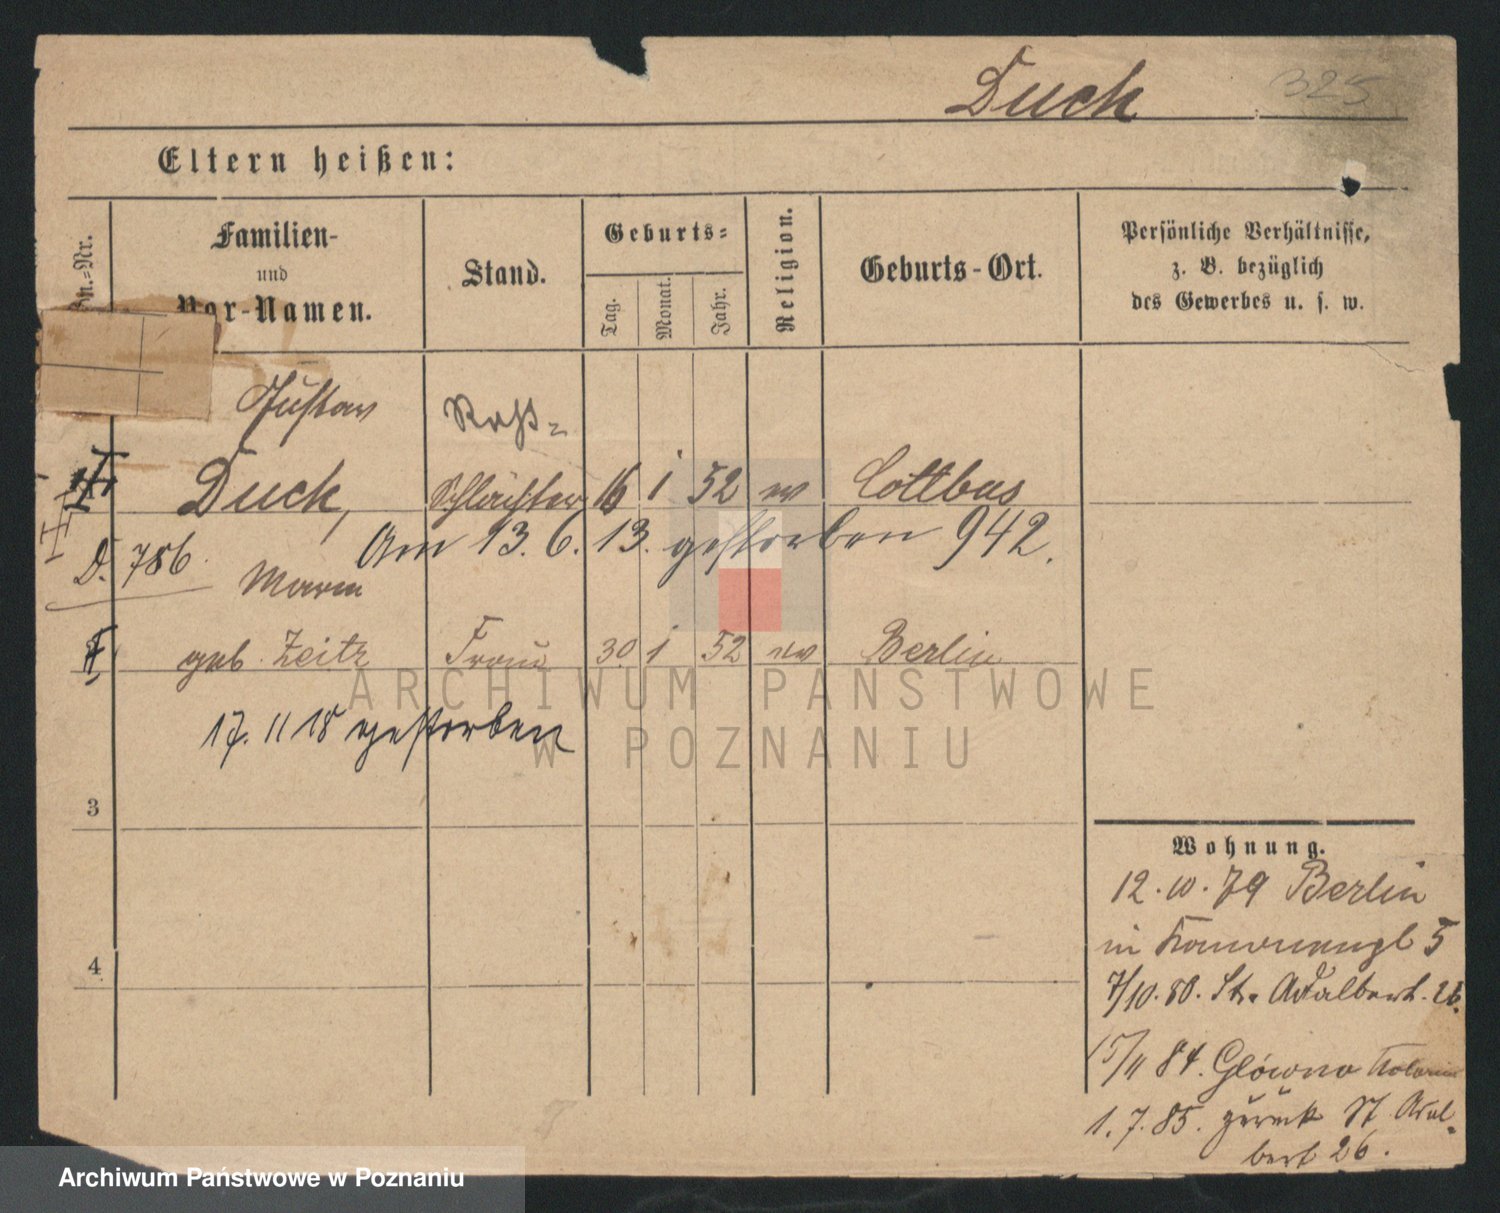 Duck 325
Eltern heißen:
Familien-
und
Vor-Namen.
Stand.
Geburts-
Tag.
Monat.
Jahr.
Religion.
Geburts-Ort.
Persönliche Verhältnisse,
z. B. bezüglich
des Gewerbes u. s. w.
Gustav Roß-
Duck, Schlächter 16 1 52 ev Cottbus
Am 13. 6. 13. gestorben 942.
D. 786.
Maria
geb. Zeitz Frau 30 1 52 ev Berlin
17. 11 18 gestorben
3
4
Wohnung.
12. 10. 79 Berlin
in 5
7/10. 80. St. Adalbert. 26.
15/11 84. Główno
1. 7. 85. zurück St Adal-
bert 26.
ARCHIWUM PAŃSTWOWE
W POZNANIU
Archiwum Państwowe w Poznaniu